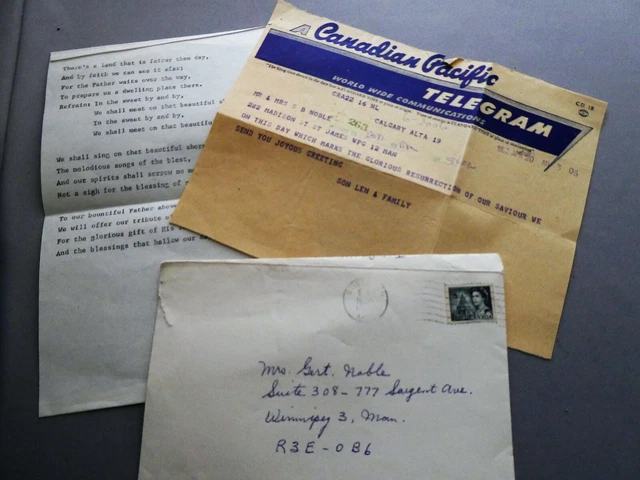 There's a land that is fairer than day,
And by faith we can see it afar;
For the Father waits over the way,
To prepare us a dwelling place there.
Refrain: In the sweet by and by,
We shall meet on that beautiful
In the sweet by and by,
We shall meet on that beautiful
We shall sing on that beautiful shore
The melodious songs of the blest,
And our spirits shall sorrow no
Not a sigh for the blessing of
To our bountiful Father above
We will offer our tribute
For the glorious gift of His
And the blessings that hallow our
Canadian Pacific
TELEGRAM
WORLD WIDE COMMUNICATIONS
CRA22 16 NL
CALGARY ALTA 19
MR & MRS S B NOBLE
262 MADISON ST ST JAMES WPG 12 MAN
ON THIS DAY WHICH MARKS THE GLORIOUS RESURRECTION OF OUR SAVIOUR WE
SEND YOU JOYOUS GREETING
SON LEN & FAMILY
Mrs. Gert. Noble
Suite 308-777 Sargent Ave.
Winnipeg 3, Man.
R3E-0B6